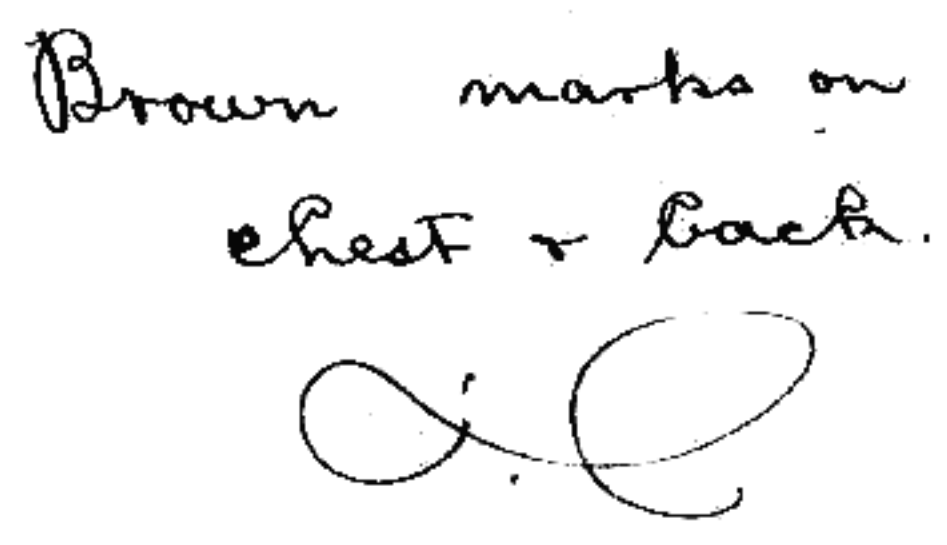 Brown marks on
chest & back.